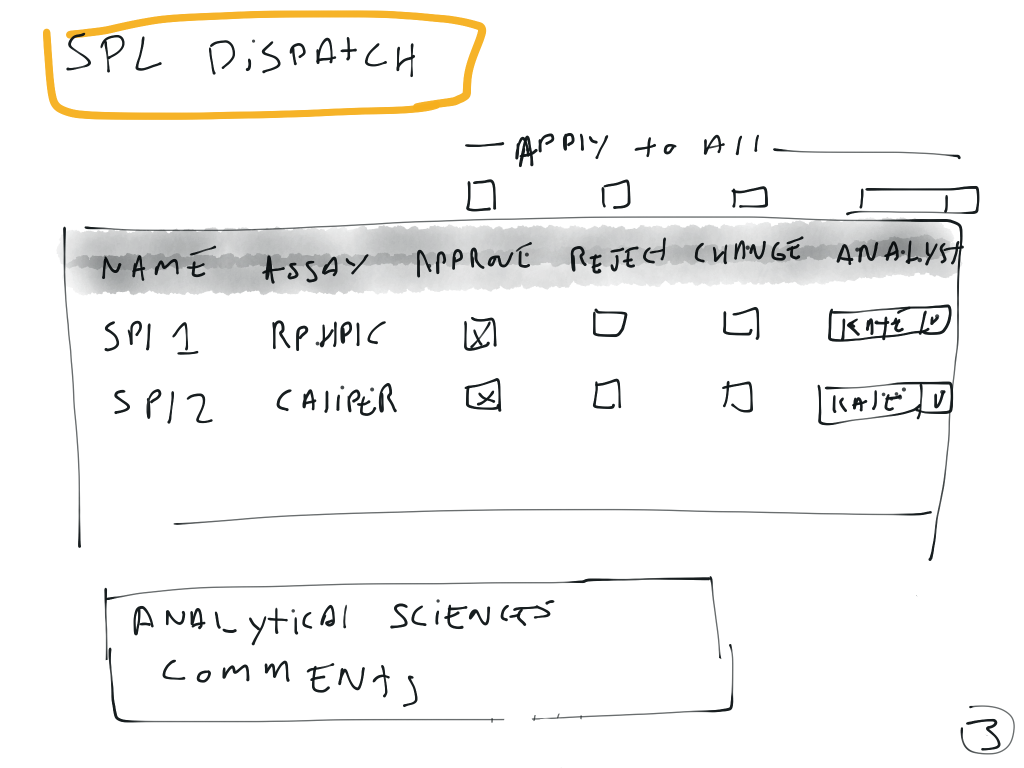 SPL DiSPAtCH
APPlY to All
NAME ASSAY APPROVE REJECt CHANGE ANALYSt
SPl 1 RP.HPlC X KAtE V
SPl 2 CAliPER X KAtE V
ANALytiCAl SCiENCES
COMMENtS
3